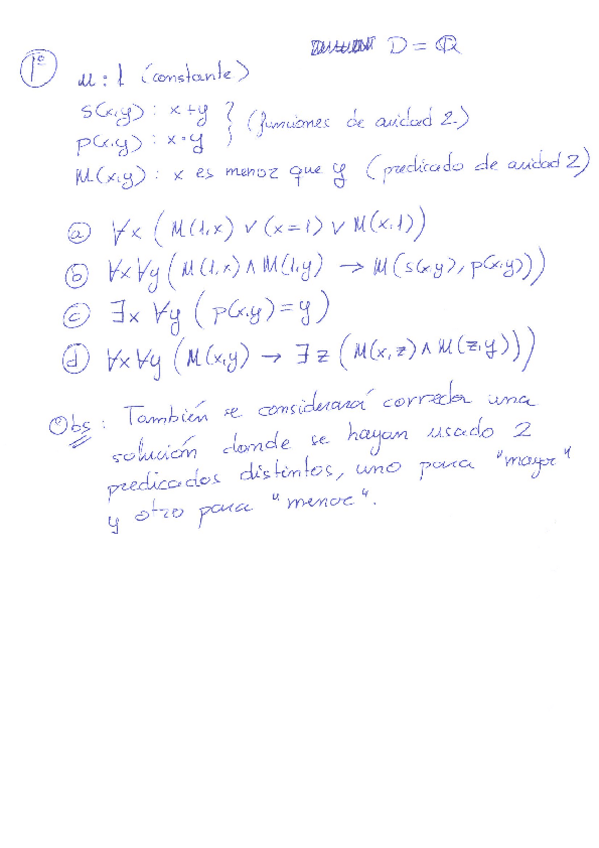 D = ℚ
1º
u : 1 (constante)
s(x,y) : x + y } (funciones de aridad 2.)
p(x,y) : x · y
M(x,y) : x es menor que y (predicado de aridad 2)
a) ∀x (M(1,x) ∨ (x = 1) ∨ M(x,1))
b) ∀x ∀y (M(1,x) ∧ M(1,y) → M(s(x,y), p(x,y)))
c) ∃x ∀y (p(x,y) = y)
d) ∀x ∀y (M(x,y) → ∃z (M(x,z) ∧ M(z,y)))
Obs : También se considerará correcta una
solución donde se hayan usado 2
predicados distintos, uno para "mayor"
y otro para "menor".